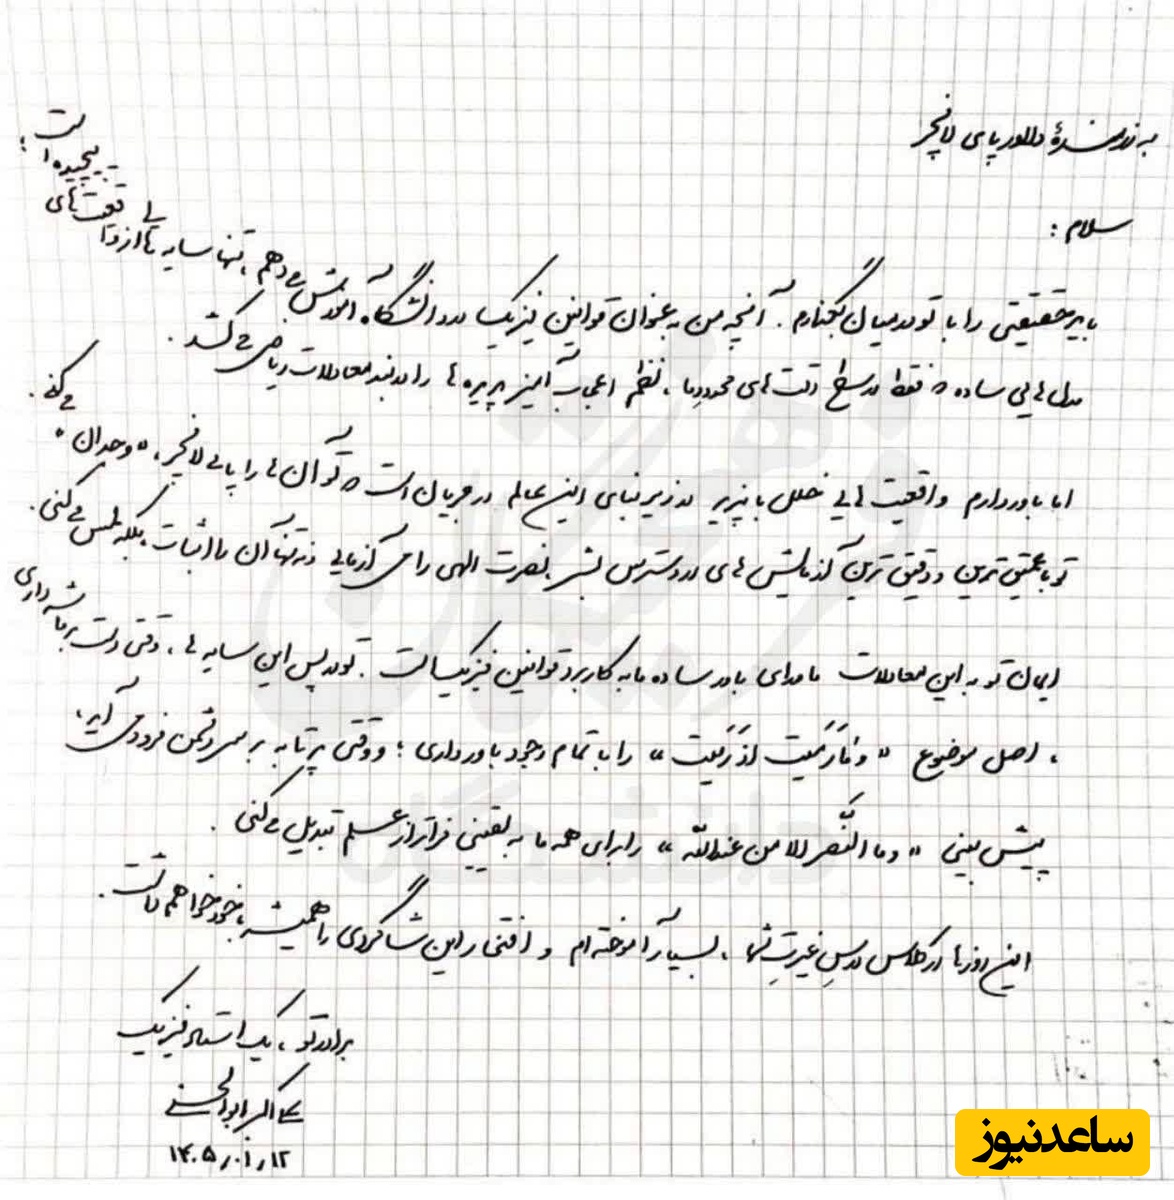 به رزمندهٔ دلاور پای لانچر
سلام :
باید حقیقتی را با تو در میان بگذارم . آنچه من به عنوان قوانین فیزیک در دانشگاه آموزش می دهم ، تنها سایه هایی از واقعیت های پیچیده است ؛
مدل هایی ساده که فقط در سطح دقت های محدود ما ، نظم اعجاب آمیز پدیده ها را در بند معادلات ریاضی می کشد .
اما باور دارم واقعیت هایی خلل ناپذیر در زیر بنای این عالم در جریان است که تو آن ها را پای لانچر ، « وجدان » می کنی .
تو با عمیق ترین و دقیق ترین آزمایش های در دسترس بشر ، نصرت الهی را می آزمایی و نه تنها آن را اثبات ، بلکه لمس می کنی .
ایمان تو به این معادلات ماورای باور ساده ما به کاربرد قوانین فیزیک است . تو در پس این سایه ها ، وقتی دست بر ماشه داری
، اصل موضوع « وما رَمَیتَ اذ رَمَیت » را با تمام وجود باور داری ؛ و وقتی پرتابه بر سر دشمن فرود می آید ،
پیش بینی « وما النَّصر الا من عندالله » را برای همه ما به یقینی فراتر از علم تبدیل می کنی .
این روزها از کلاس درسِ غیرتِ شما ، بسیار آموخته ام و افتخار این شاگردی را همیشه با خود خواهم داشت .
برادر تو ، یک استاد فیزیک
علی اکبر ابوالحسنی
۱۴۰۵/۰۱/۱۲
فرهنگیان
دانشگاه
ساعدنیوز